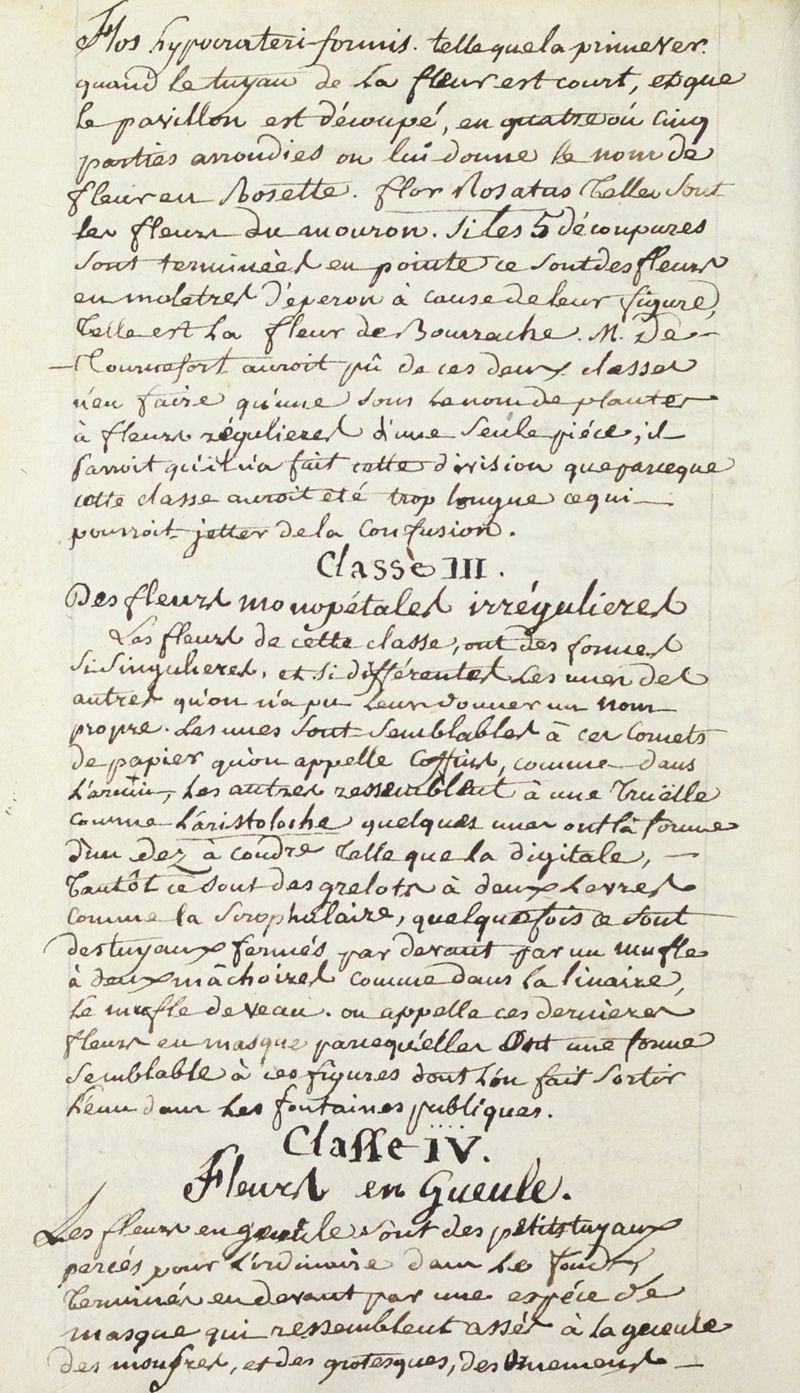 flos hypocrateri-formis. telle que la primever.
quand le tuyau de la fleur est court, et que
le pavillon est découpé, en quatre ou cinq
parties arrondies on lui donne le nom de
fleur en Rosette. flor Rosatus Telles sont
les fleurs du mouron. si les 5 découpures
sont terminées en pointe ce sont des fleurs
en molétres d'éperon à cause de leur figure,
Telle est la fleur de Bourrache. M. De
Tournefort auroit pû de ces deux classes
n'en faire qu'une sous le nom de plantes
à fleurs régulieres d'une seule piéce, il
paroit qu'il n'a fait cette division que parceque
cette classe auroit eté trop longue ce qui
pourroit jetter de la Confusion.
Classe III.
Des fleurs monopétales irrégulieres
Les fleurs de cette classe, ont des formes
si singulieres, et si différentes les unes des
autres qu'on n'a pu leur donner un nom
propre. Les unes sont semblables à ces Cornets
de papier qu'on appelle Coffins, comme dans
L'arum, les autres ressemblent à une Truëlle
comme L'aristoloche quelques unes ont la forme
d'un dez à coudre Telle que la digitale,
Tantôt ce sont des grelots à deux Levres
comme la scrophulaire, quelquefois ce sont
des tuyaux fermés par devant par un mufle
à deux mâchoires comme dans la linaire,
Le mufle de veau. on appelle ces dernieres
fleurs en masque parcequ'elles ont une forme
semblable à ces figures dont l'on fait sortir
l'eau dans les fontaines publiques.
Classe IV.
Fleurs en Gueule.
Les fleurs en gueule sont des petits tuyaux
percés pour L'ordinaire dans le fond,
Terminés en devant par une espéce de
masque qui ressemblent assés à la gueule
des monstres, et des grotesques, des Ornemens